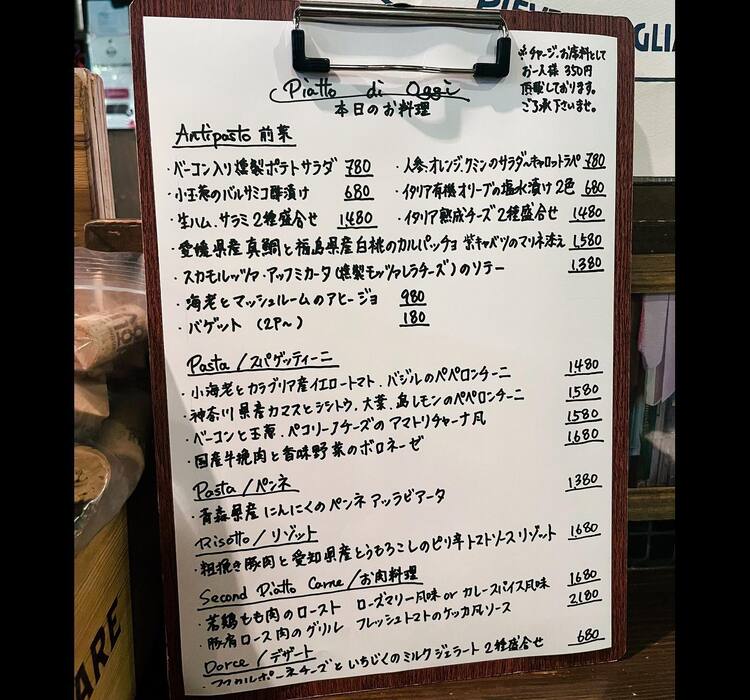 ※チャージ、お席料として
お一人様 350円
頂戴しております。
ご了承下さいませ。
Piatto di Oggi
本日のお料理
Antipasto 前菜
・ベーコン入り燻製ポテトサラダ 780
・人参、オレンジ、クミンのサラダ〜キャロットラペ 780
・小玉葱のバルサミコ酢漬け 680
・イタリア有機オリーブの塩水漬け 2色 680
・生ハム、サラミ 2種盛合せ 1,480
・イタリア熟成チーズ 2種盛合せ 1,480
・愛媛県産真鯛と福島県産白桃のカルパッチョ 紫キャベツのマリネ添え 1,580
・スカモルッツァ・アッフミカータ(燻製モッツァレラチーズ)のソテー 1,380
・海老とマッシュルームのアヒージョ 980
・バゲット (2P〜) 180
Pasta / スパゲッティーニ
・小海老とカラブリア産イエロートマト、バジルのペペロンチーニ 1480
・神奈川県産カマスとシシトウ、大葉、島レモンのペペロンチーニ 1580
・ベーコンと玉葱、ペコリーノチーズのアマトリチャーナ風 1580
・国産牛挽肉と香味野菜のボロネーゼ 1680
Pasta / ペンネ
・青森県産にんにくのペンネ アッラビアータ 1,380
Risotto / リゾット
・粗挽き豚肉と愛知県産とうもろこしのピリ辛トマトソースリゾット 1,680
Second Piatto Carne / お肉料理
・若鶏もも肉のロースト ローズマリー風味 or カレースパイス風味 1680
・豚肩ロース肉のグリル フレッシュトマトのケッカ風ソース 2180
Dorce / デザート
・マスカルポーネチーズといちじくのミルクジェラート 2種盛合せ 680
ARE